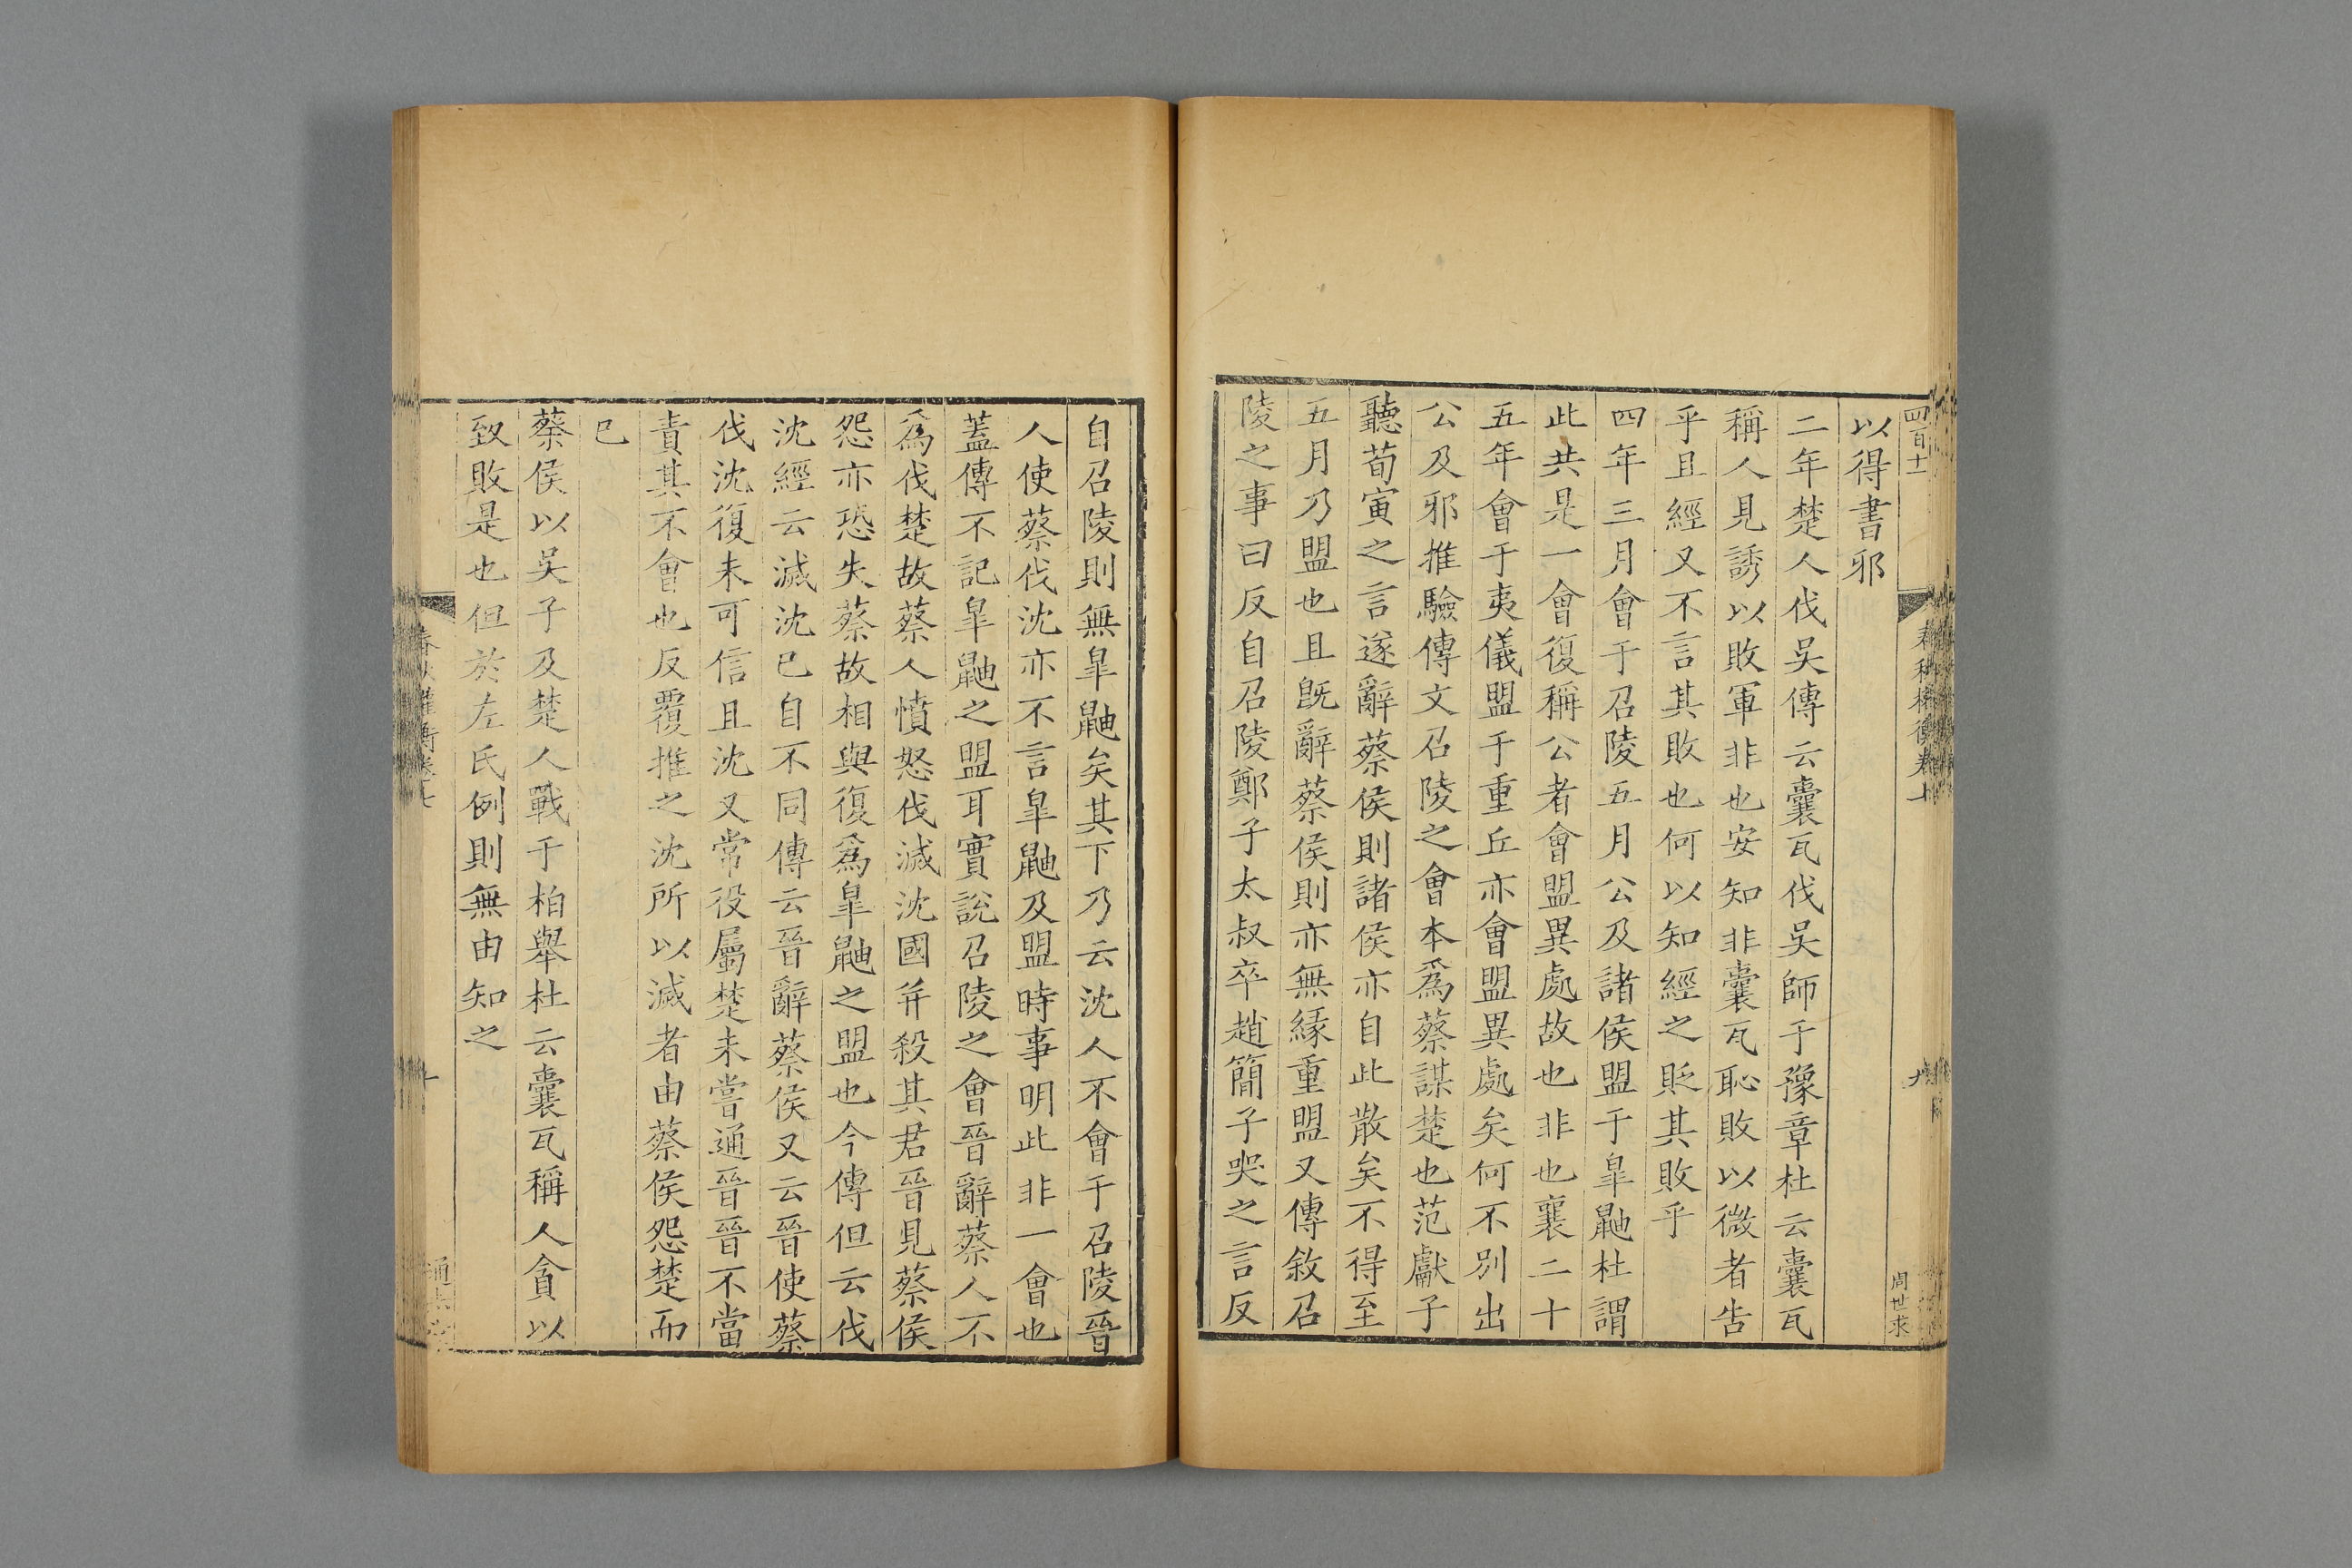 四百十
以得書邪
二年楚人伐吳傳云囊瓦伐吳師于豫章杜云囊瓦
稱人見誘以敗軍非也安知非囊瓦恥敗以微者告
乎且經又不言其敗也何以知經之貶其敗乎
四年三月會于召陵五月公及諸侯盟于臯鼬杜謂
此共是一會復稱公者會盟異處故也非也襄二十
五年會于夷儀盟于重丘亦會盟異處矣何不別出
公及邪推驗傳文召陵之會本爲蔡謀楚也范獻子
聽荀寅之言遂辭蔡侯則諸侯亦自此散矣不得至
五月乃盟也且既辭蔡侯則亦無緣重盟又傳敘召
陵之事曰反自召陵鄭子太叔卒趙簡子哭之言反
周世求
自召陵則無臯鼬矣其下乃云沈人不會于召陵晉
人使蔡伐沈亦不言臯鼬及盟時事明此非一會也
蓋傳不記臯鼬之盟耳實說召陵之會晉辭蔡人不
爲伐楚故蔡人憤怒伐滅沈國并殺其君晉見蔡侯
怨亦恐失蔡故相與復爲臯鼬之盟也今傳但云伐
沈經云滅沈已自不同傳云晉辭蔡侯又云晉使蔡
伐沈復未可信且沈又常役屬楚未嘗通晉晉不當
責其不會也反覆推之沈所以滅者由蔡侯怨楚而
已
蔡侯以吳子及楚人戰于柏舉杜云囊瓦稱人貪以
致敗是也但於左氏例則無由知之